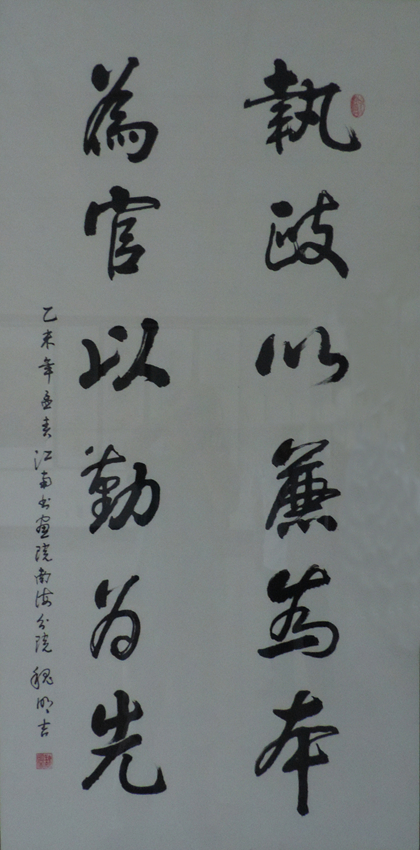 執政以廉為本
為官以勤为先
乙未年孟春江南书画院南海分院魏明吉